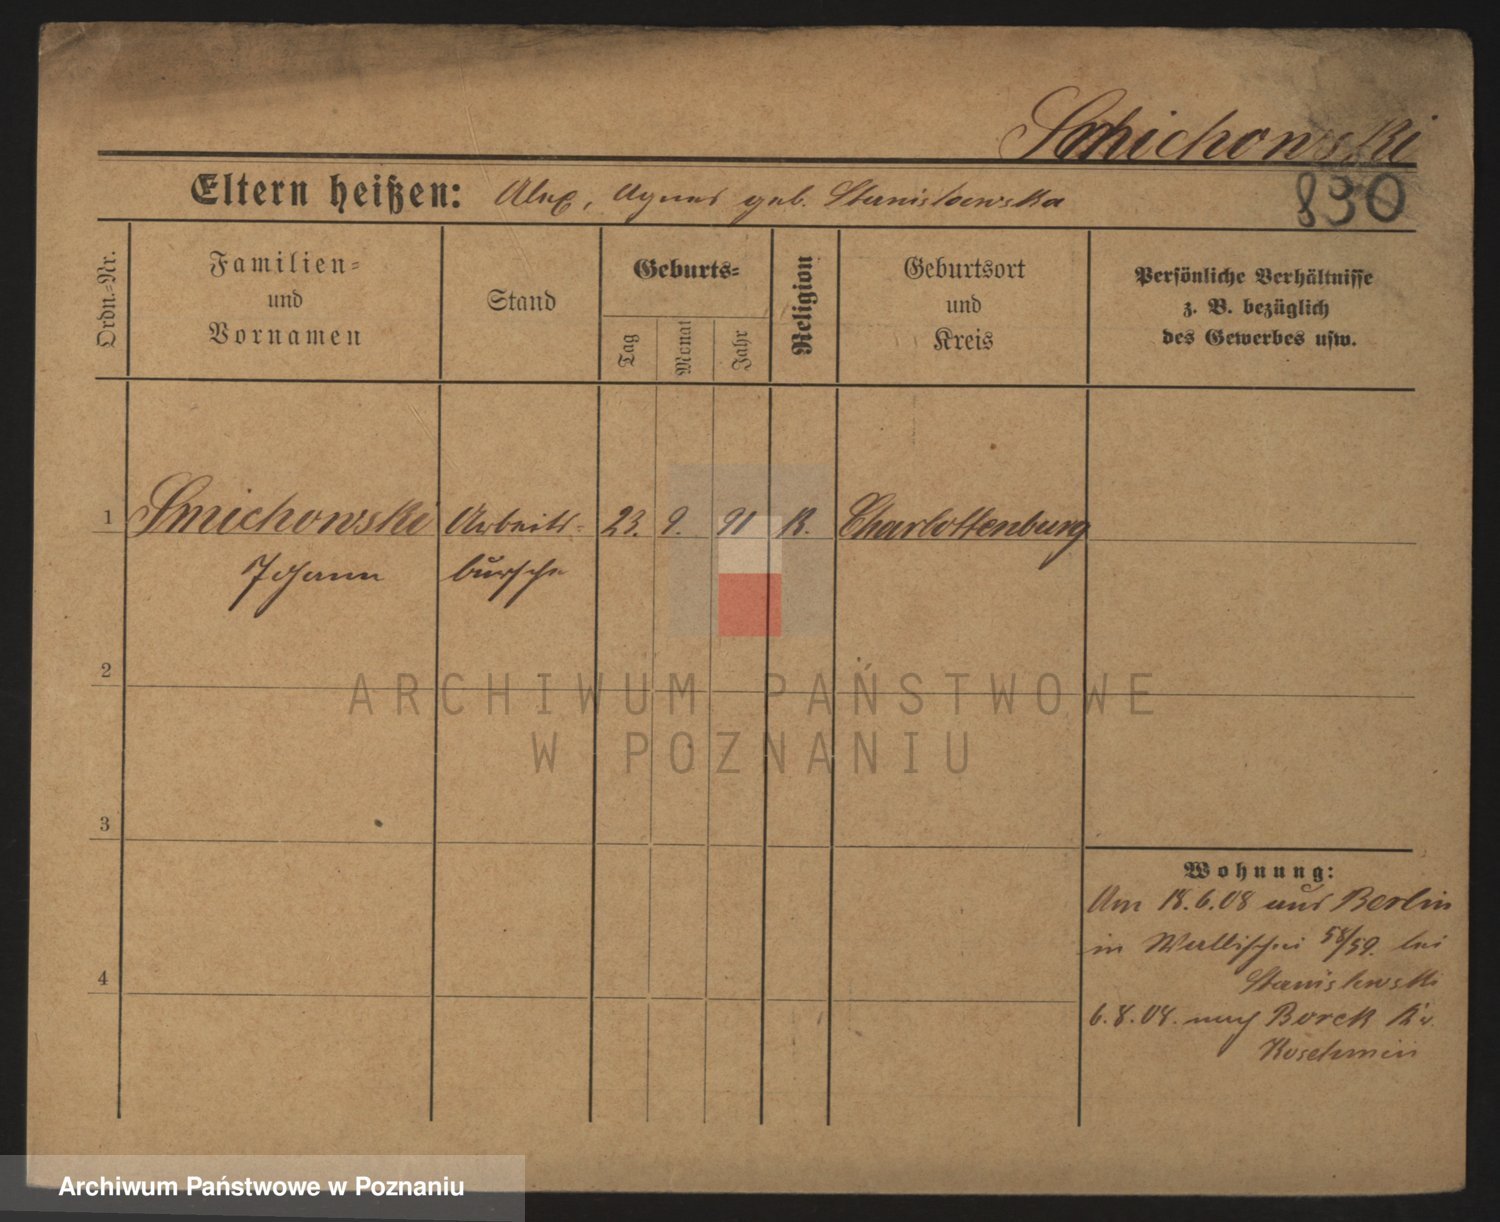 Smichowski
830
Eltern heißen: Alex, Agnes geb. Stanislowska
Ordn.-Nr.
Familien-
und
Vornamen
Stand
Geburts-
Tag
Monat
Jahr
Religion
Geburtsort
und
Kreis
Persönliche Verhältnisse
z. B. bezüglich
des Gewerbes usw.
1 Smichowski Arbeits- 23. 9. 91 K. Charlottenburg
Johann bursche
2
ARCHIWUM PAŃSTWOWE
W POZNANIU
3
Wohnung:
Am 18.6.08 aus Berlin
in Wallischei 58/59. bei
Stanislewski
4
6.8.08. nach Borek Kr.
Koschmin
Archiwum Państwowe w Poznaniu